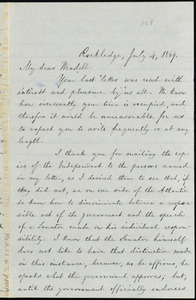 Rockledge, July 4, 1869.
My dear Wendell:
Your last letter was read with
interest and pleasure by us all. We know
how incessantly your time is occupied, and
therefore it would be unreasonable for us
to expect you to write frequently or at any
length.
I thank you for mailing the cop-
ies of the Independent to the persons named
in my letter, as I desired them to see that, if
they did not, on our side of the Atlantic
do know how to discriminate between a respon-
sible act of the government and the speech
of a Senator made on his individual respon-
sibility. I know that the Senator himself
does not like to have that distinction made
in this instance, because, as he affirms, he
speaks what the government approves; but,
until the government officially endorses